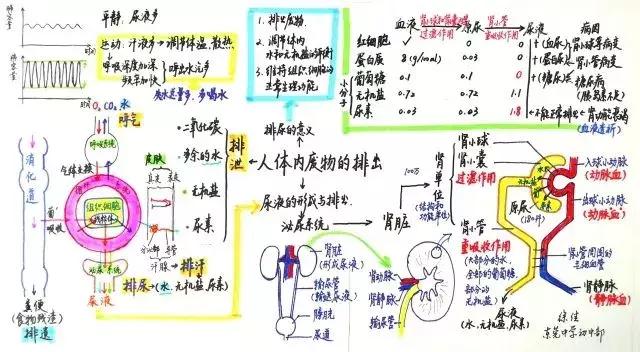 平静,尿液多
运动:汗液多→调节体温,散热
呼吸深度加深
频率加快
呼出水汽多
失水过量多,多喝水
1.排出废物.
2.调节体内
水和无机盐的平衡
3.维持组织细胞的
正常生理功能.
排尿的意义
血液
肾小球和肾小囊
过滤作用
原尿
肾小管
重吸收作用
尿液
病因
红细胞 ✓ 0 0 +(血尿) 肾小球有病变
蛋白质 8(g/100ml) 0.03 0
葡萄糖 0.1 0.1 0 +(糖尿) 糖尿病
(胰岛素不足)
无机盐 0.72 0.72 1.1
尿素 0.03 0.03 1.8 →不能正常排出←肾功能衰竭
(血液透析)
小分子
O₂ CO₂ 水
呼气
呼吸系统
气体交换
循环系统
组织细胞
线粒体
消化道
吸收
泌尿系统
尿液
粪便
(食物残渣)
排遗
皮肤
汗腺→排汗
排尿→(水、无机盐、尿素)
排泄
·二氧化碳
·多余的水
·无机盐
·尿素
人体内废物的排出
尿液的形成与排出
泌尿系统
肾脏
(形成尿液)
输尿管
(输送尿液)
膀胱
尿道
肾脏
100万
肾单位
(结构和功能单位)
肾动脉
肾静脉
输尿管
肾小球
肾小囊
过滤作用
肾小管
重吸收作用
(大部分的水,
全部的葡萄糖,
部分的
无机盐)
原尿
(180升)
尿液
(水、无机盐、尿素)
入球小动脉
(动脉血)
出球小动脉
(动脉血)
肾小管周围的
毛细血管
肾静脉
(静脉血)
徐佳
东莞中学初中部